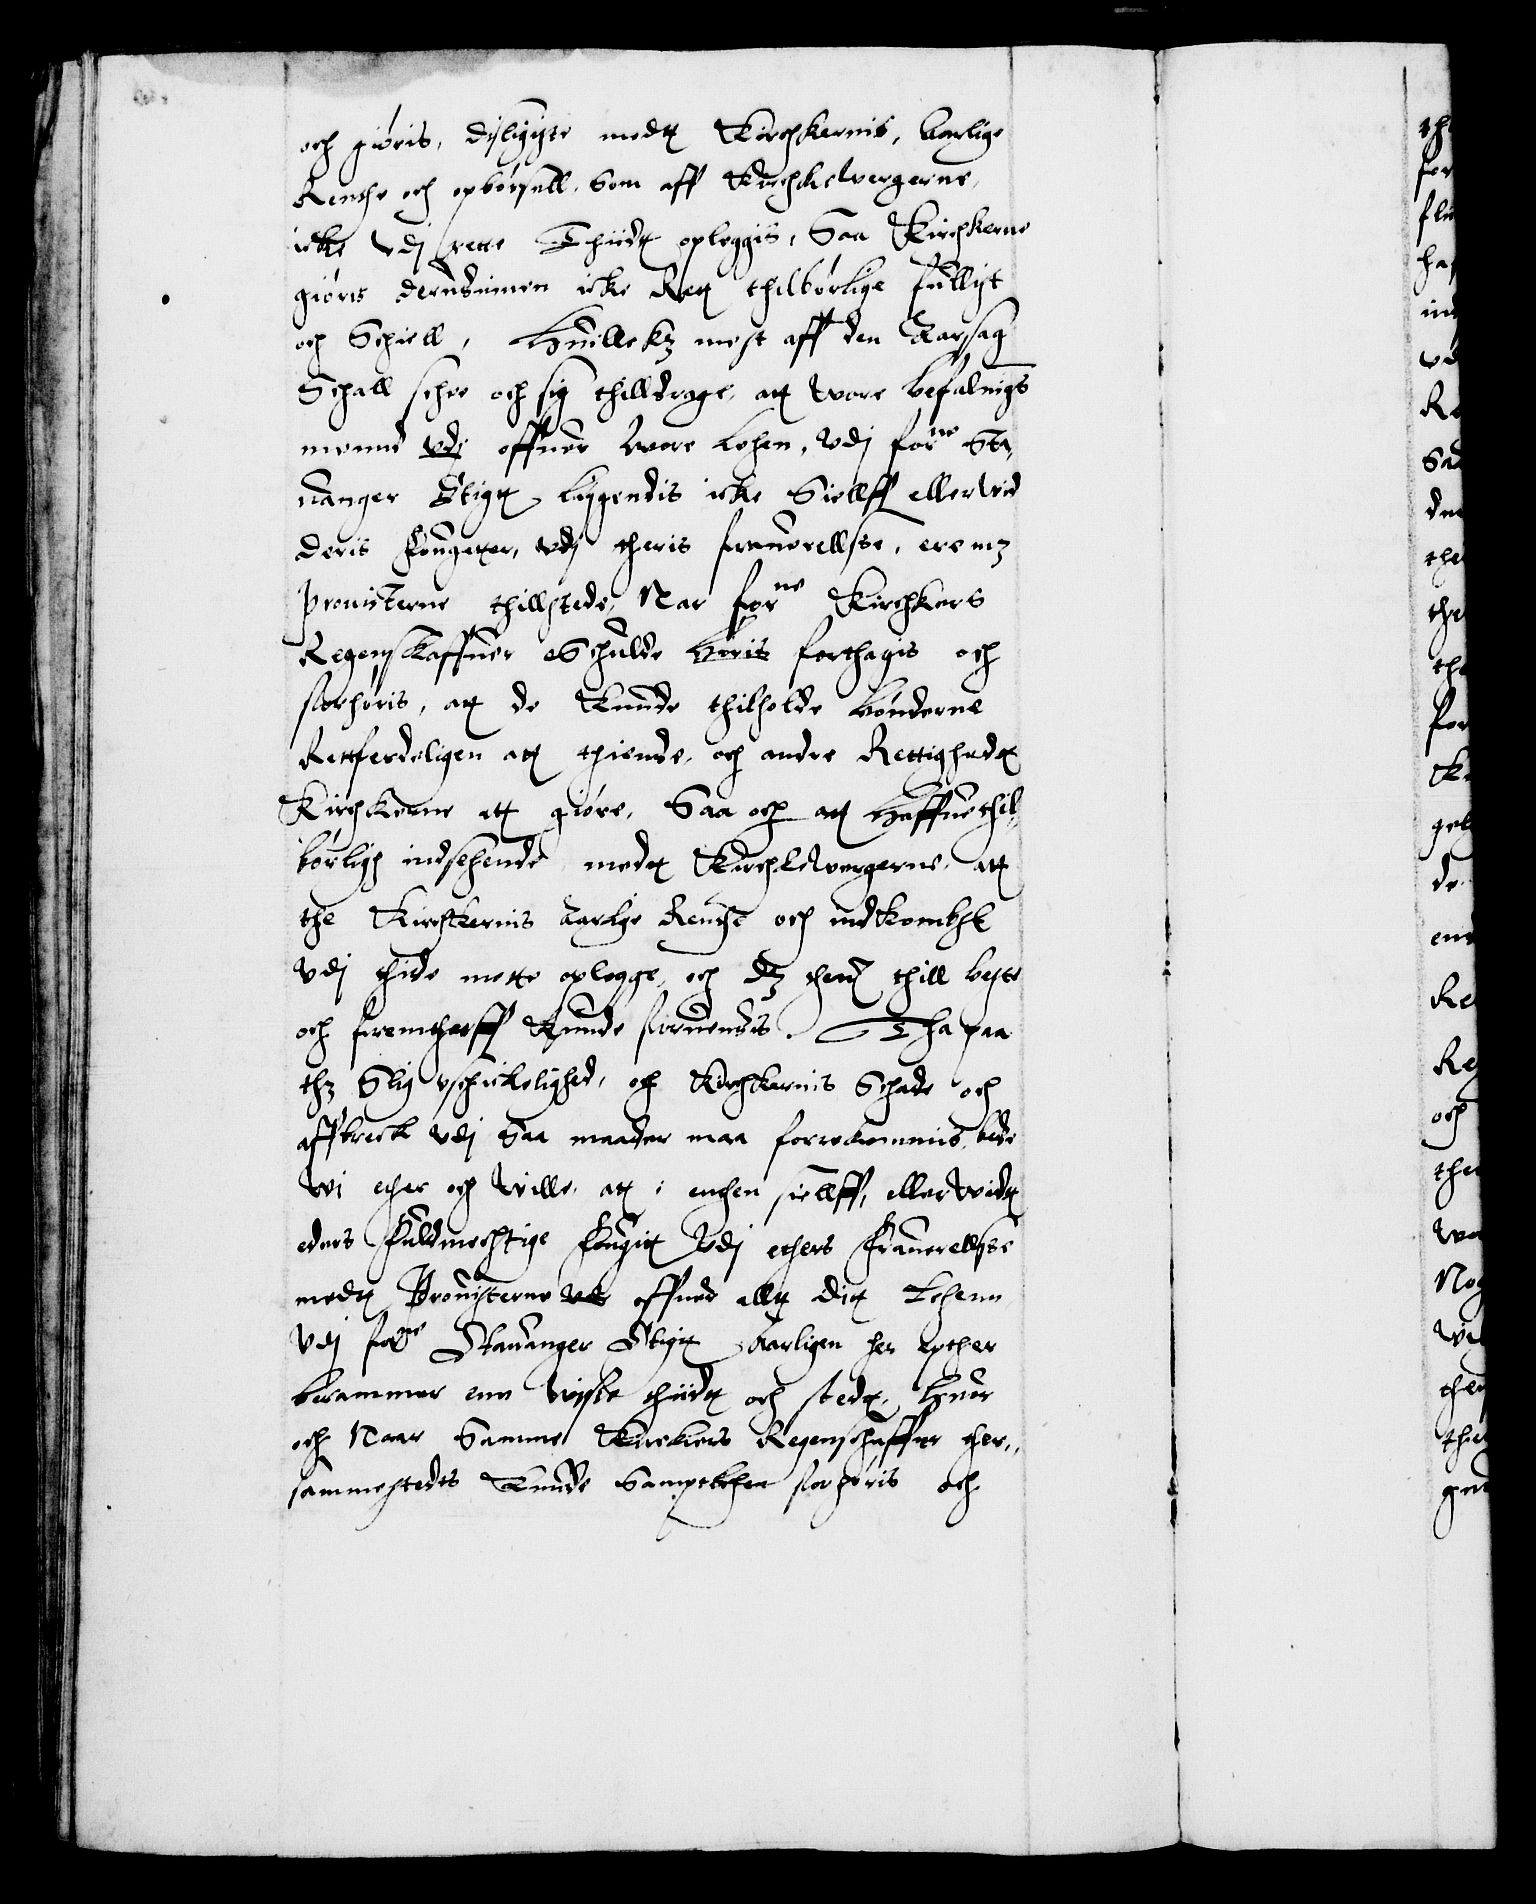 och giøris, disligiste medt Kirchkernis, Aarlige
Renthe och opbørsell. Som aff Kirchkewergerne,
icke udj rette Thiidt opleggis, Saa Kirchkerne
giøris derudinnen icke Ret thilbørlige fullist
och Schiell, Huilket mest aff den Aarsag
Schall schee och sig thilldrage, att wore befalnigs
mennd udj offuer wore Lehen, Udj forne Sta,
uanger Stigt liggendis icke Sielff eller wed
deris Fougeter, udj theris frauerellsse, ere mz
prouisterne thillstede, Nar forne Kirchkers
Regenskaffuer Schulde høris forthagis och
forhøris, att de Kunde thilholde bønderne
Retferdeligen att thiende, och andre Rettighedt
Kirchkerne att giøre, Saa och att haffue thil
børligh indsehende medt Kirchewergerne, att
the Kirchkernis Aarlige Renthe och indkombst
Udj thide motte oplegge, och dz therd thill beste
och fremtharff Kunde foruendis. Tha paa
thz Slig uschickelighed, och Kirchkernis Schade och
affbreck udj Saa maader maa forrekommis, bede
wi ether och wille, att i enthen sielff, eller widt
eders fuldmechtige fougitt Udj ethers frauerellsse
medt Prouisterne offuer alt ditt Lehenn
Udj forne Stauanger Stigt Aarligen her epther
berammer enn wiste thiidt och stedt, Huor
och Naar Samme Kirckers Regenschaffuer ther,,
sammestedts Kunde Samptlichen forhøris och